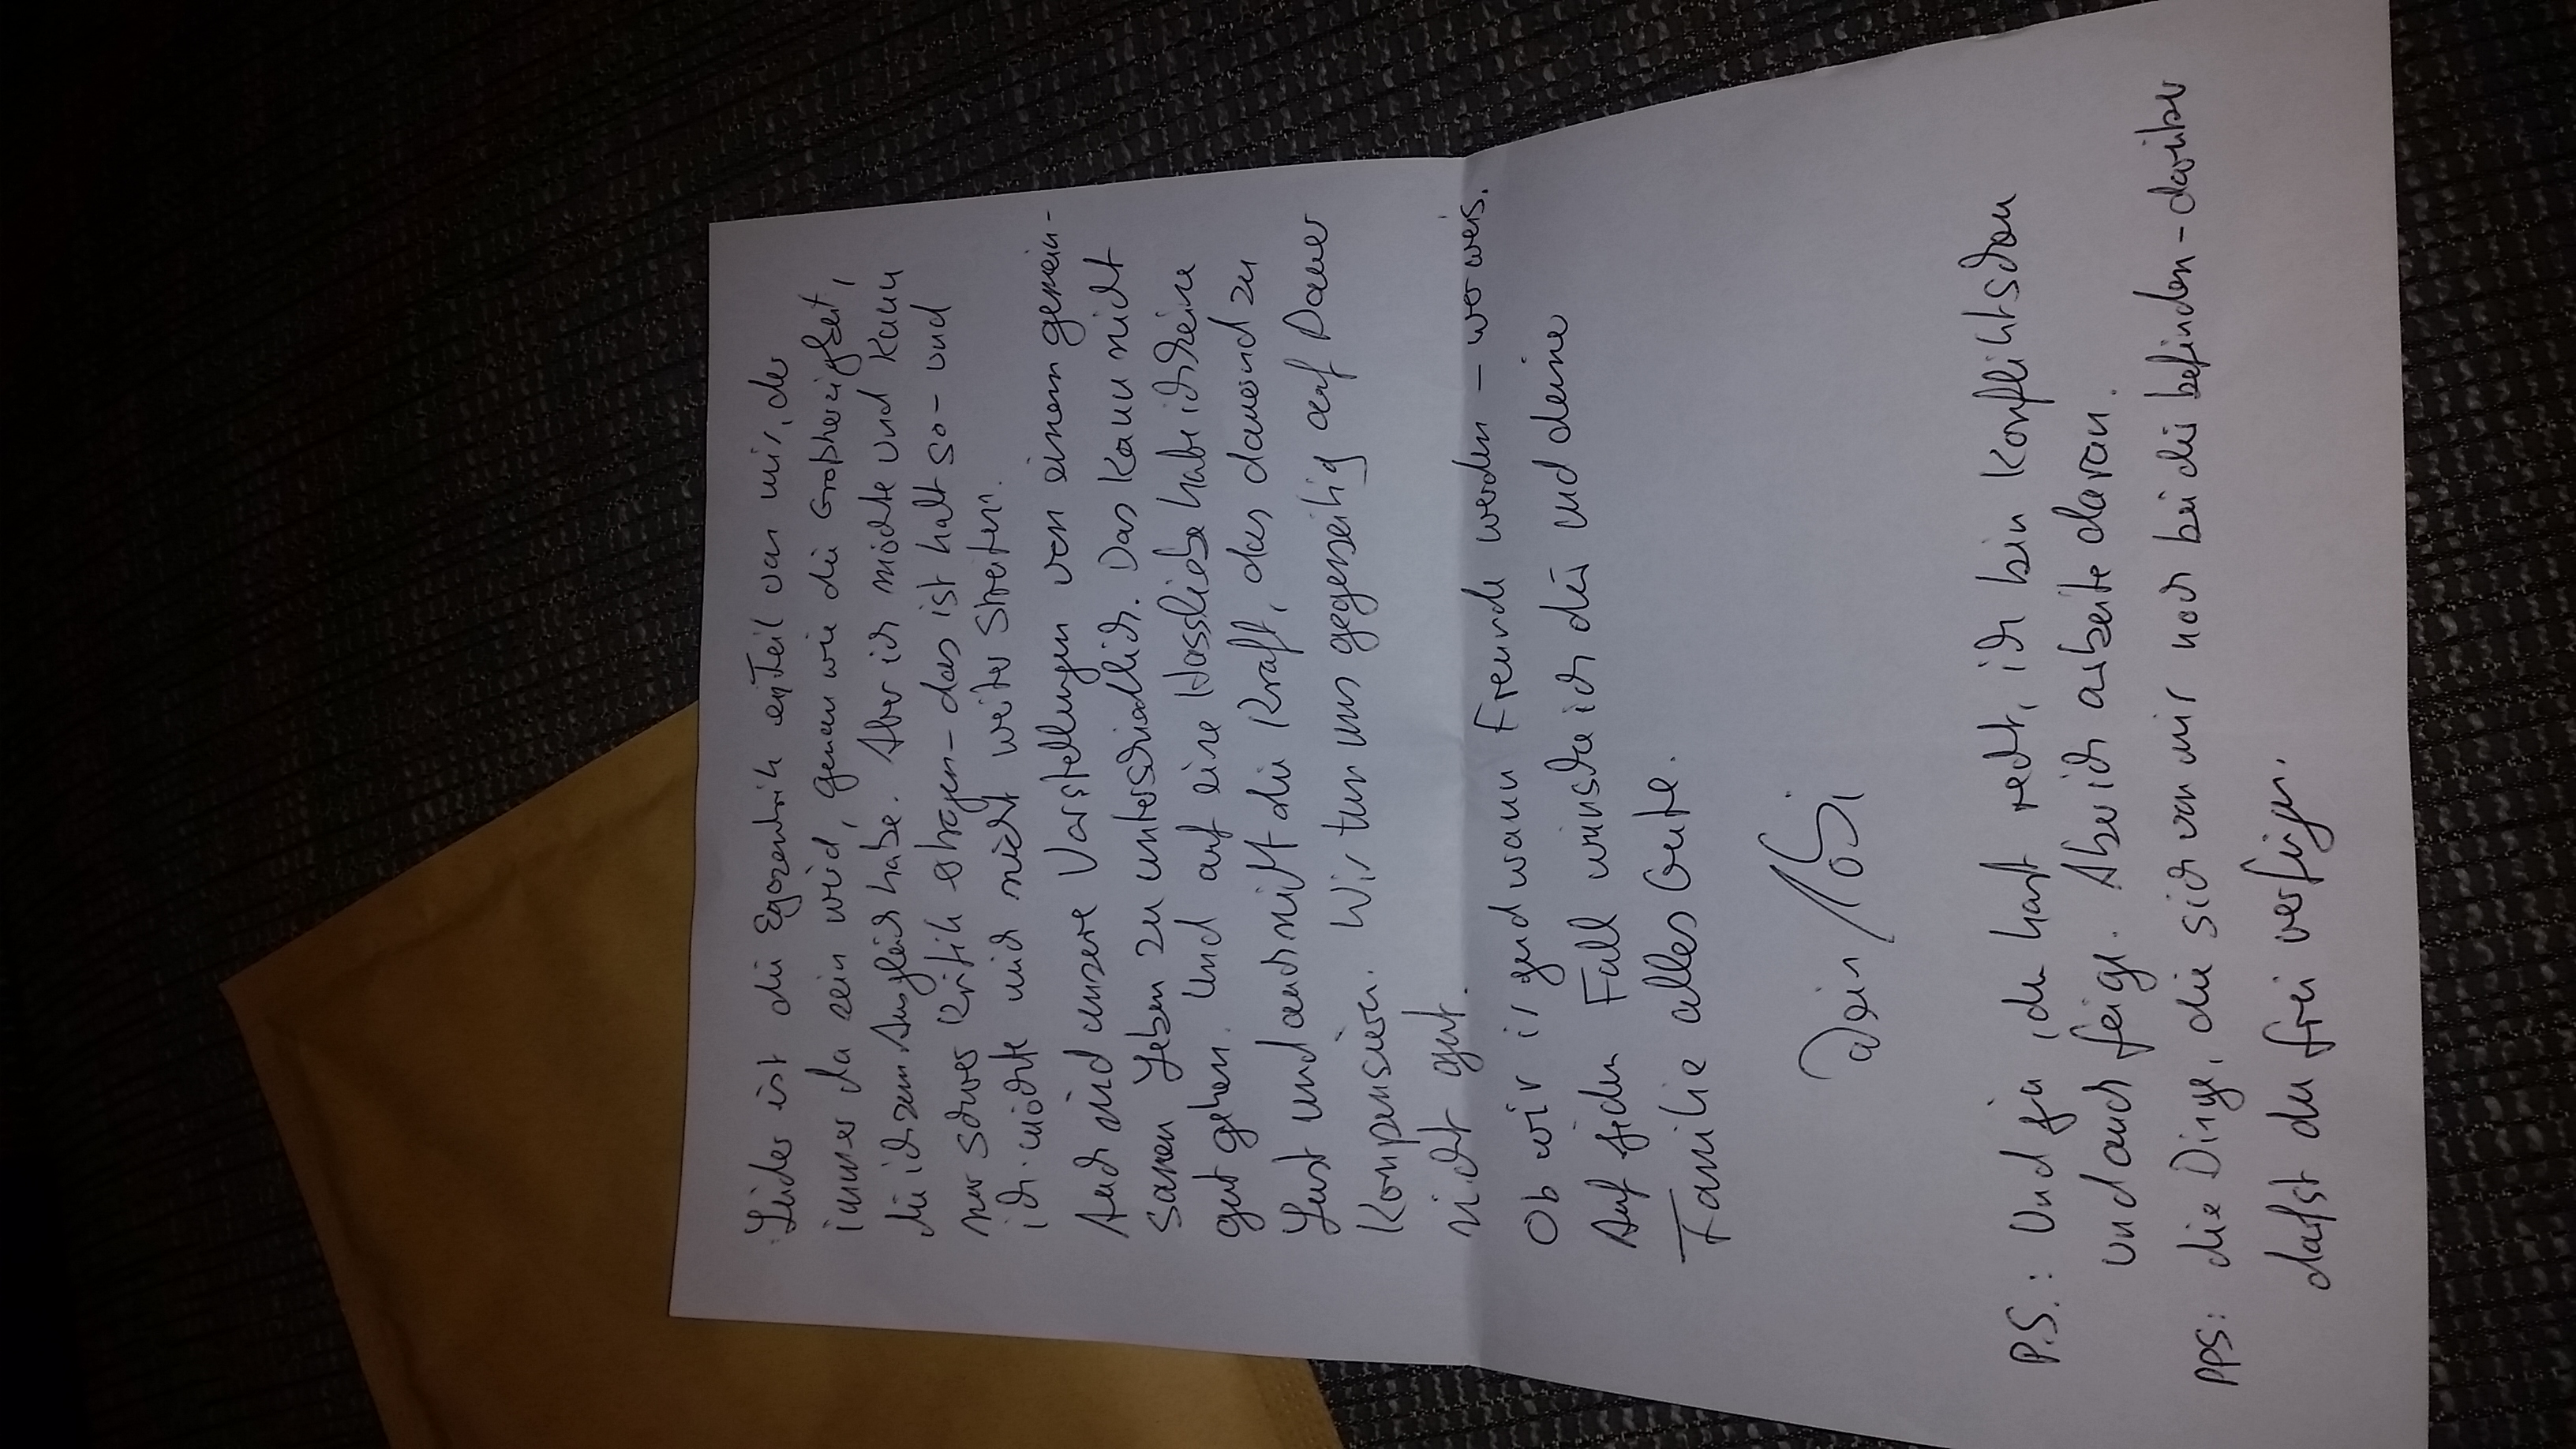 Leider ist die Egozentrik ein Teil von mir, der
immer da sein wird, genau wie die Großherzigkeit,
die ich zum Ausgleich habe. Aber ich möchte und kann
nur schwer Kritik ertragen - das ist halt so - und
ich möchte mich nicht weiter streiten.
Auch sind unsere Vorstellungen von einem gemein-
samen Leben zu unterschiedlich. Das kann nicht
gut gehen. Und auf eine Hassliebe habe ich keine
Lust und auch nicht die Kraft, das dauernd zu
kompensieren. Wir tun uns gegenseitig auf Dauer
nicht gut.
Ob wir irgendwann Freunde werden - wer weis.
Auf jeden Fall wünsche ich dir und deine
Familie alles Gute.
Dein
P.S.: Und ja, du hast recht, ich bin konfliktscheu
und auch feige. Aber ich arbeite daran.
PPS: die Dinge, die sich von mir noch bei dir befinden - darüber
darfst du frei verfügen.